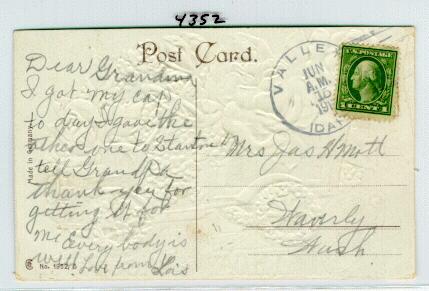 4352
Post Card.
Dear Grandma
I got my cap
to day I gave the
other one to Stanton
tell Grandpa
thank you for
getting it for
me Every body is
well. Love from Lois
Mrs Jas H Mott
Waverly
Wash
VALLE
JUN
A.M.
IDA
U.S. POSTAGE
1 CENT 1
Made in Germany
No. 1952/